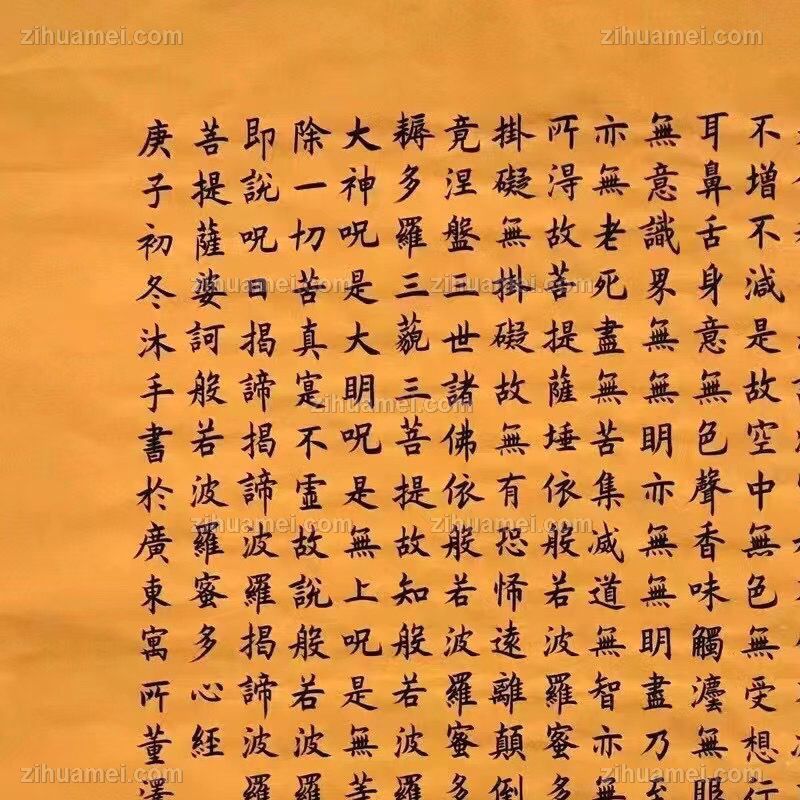 不增不減是故空中無色無受想行
耳鼻舌身意無色聲香味觸灋無眼
無意識界無無明亦無無明盡乃至
亦無老死盡無苦集滅道無智亦無
所淂故菩提薩埵依般若波羅蜜多
掛礙無掛礙故無有恐怖遠離顛倒
竟涅盤三世諸佛依般若波羅蜜多
耨多羅三藐三菩提故知般若波羅
大神呪是大明呪是無上呪是無等
除一切苦真寔不虛故說般若波羅
即說呪曰揭諦揭諦波羅揭諦波羅
菩提薩婆訶般若波羅蜜多心經
庚子初冬沐手書於廣東寓所董澤
zihuamei.com
zihuamei.com
zihuamei.com
zihuamei.com
zihuamei.com
zihuamei.com
zihuamei.com
zihuamei.com
zihuamei.com